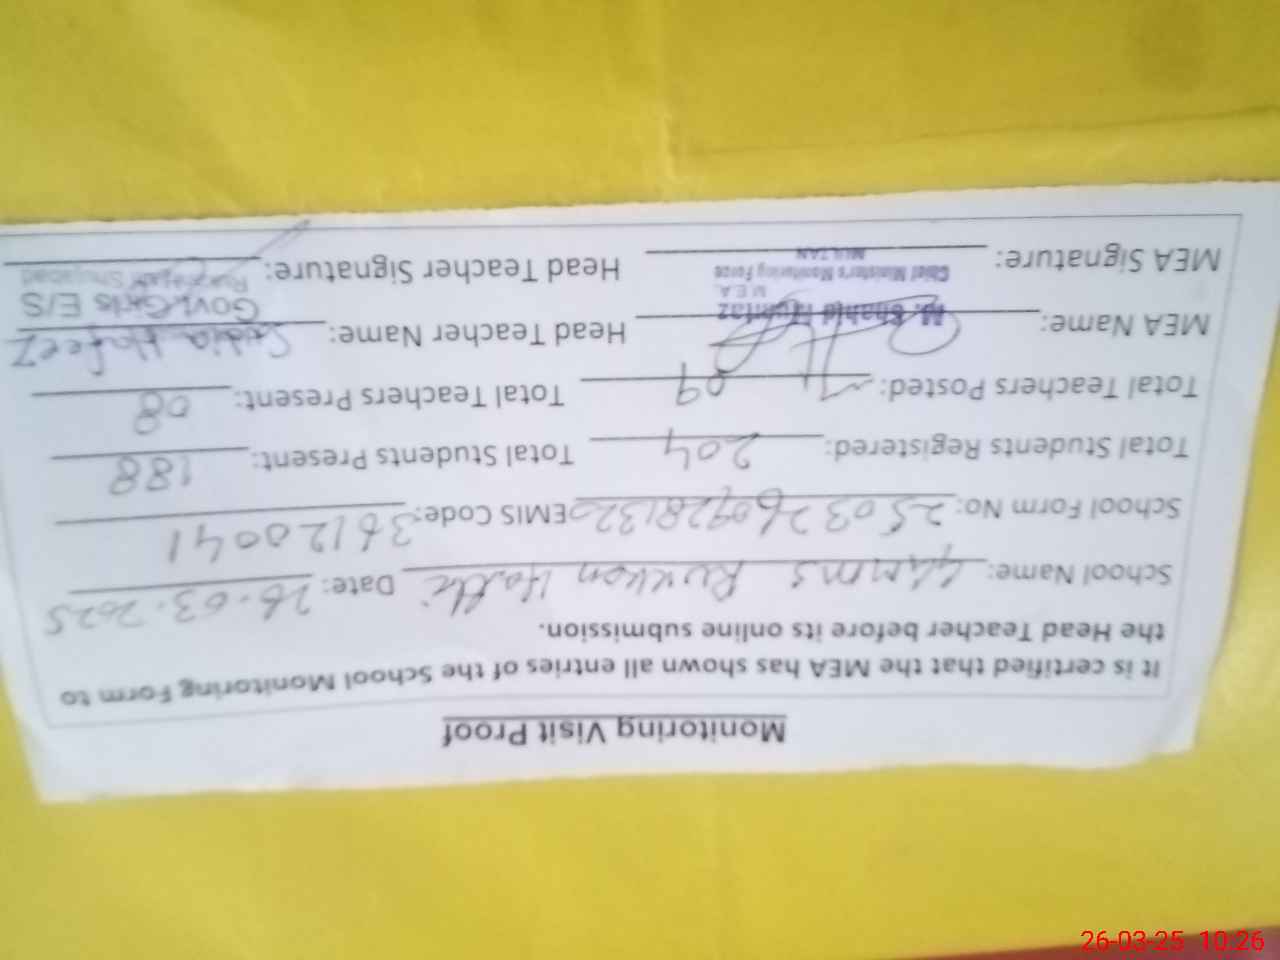 Monitoring Visit Proof
It is certified that the MEA has shown all entries of the School Monitoring Form to
the Head Teacher before its online submission.
School Name: Rukkan Hatti Date: 26-03-2025
School Form No: 2503260928132 EMIS Code: 36120041
Total Students Registered: 204 Total Students Present: 188
Total Teachers Posted: 09 Total Teachers Present: 08
MEA Name: M. Shahid Mumtaz Head Teacher Name: Sadia Hafeez
M.E.A. Govt. Girls E/S
Chief Minister's Monitoring Force Shujabad
MEA Signature: MULTAN Head Teacher Signature:
26-03-25 10:26